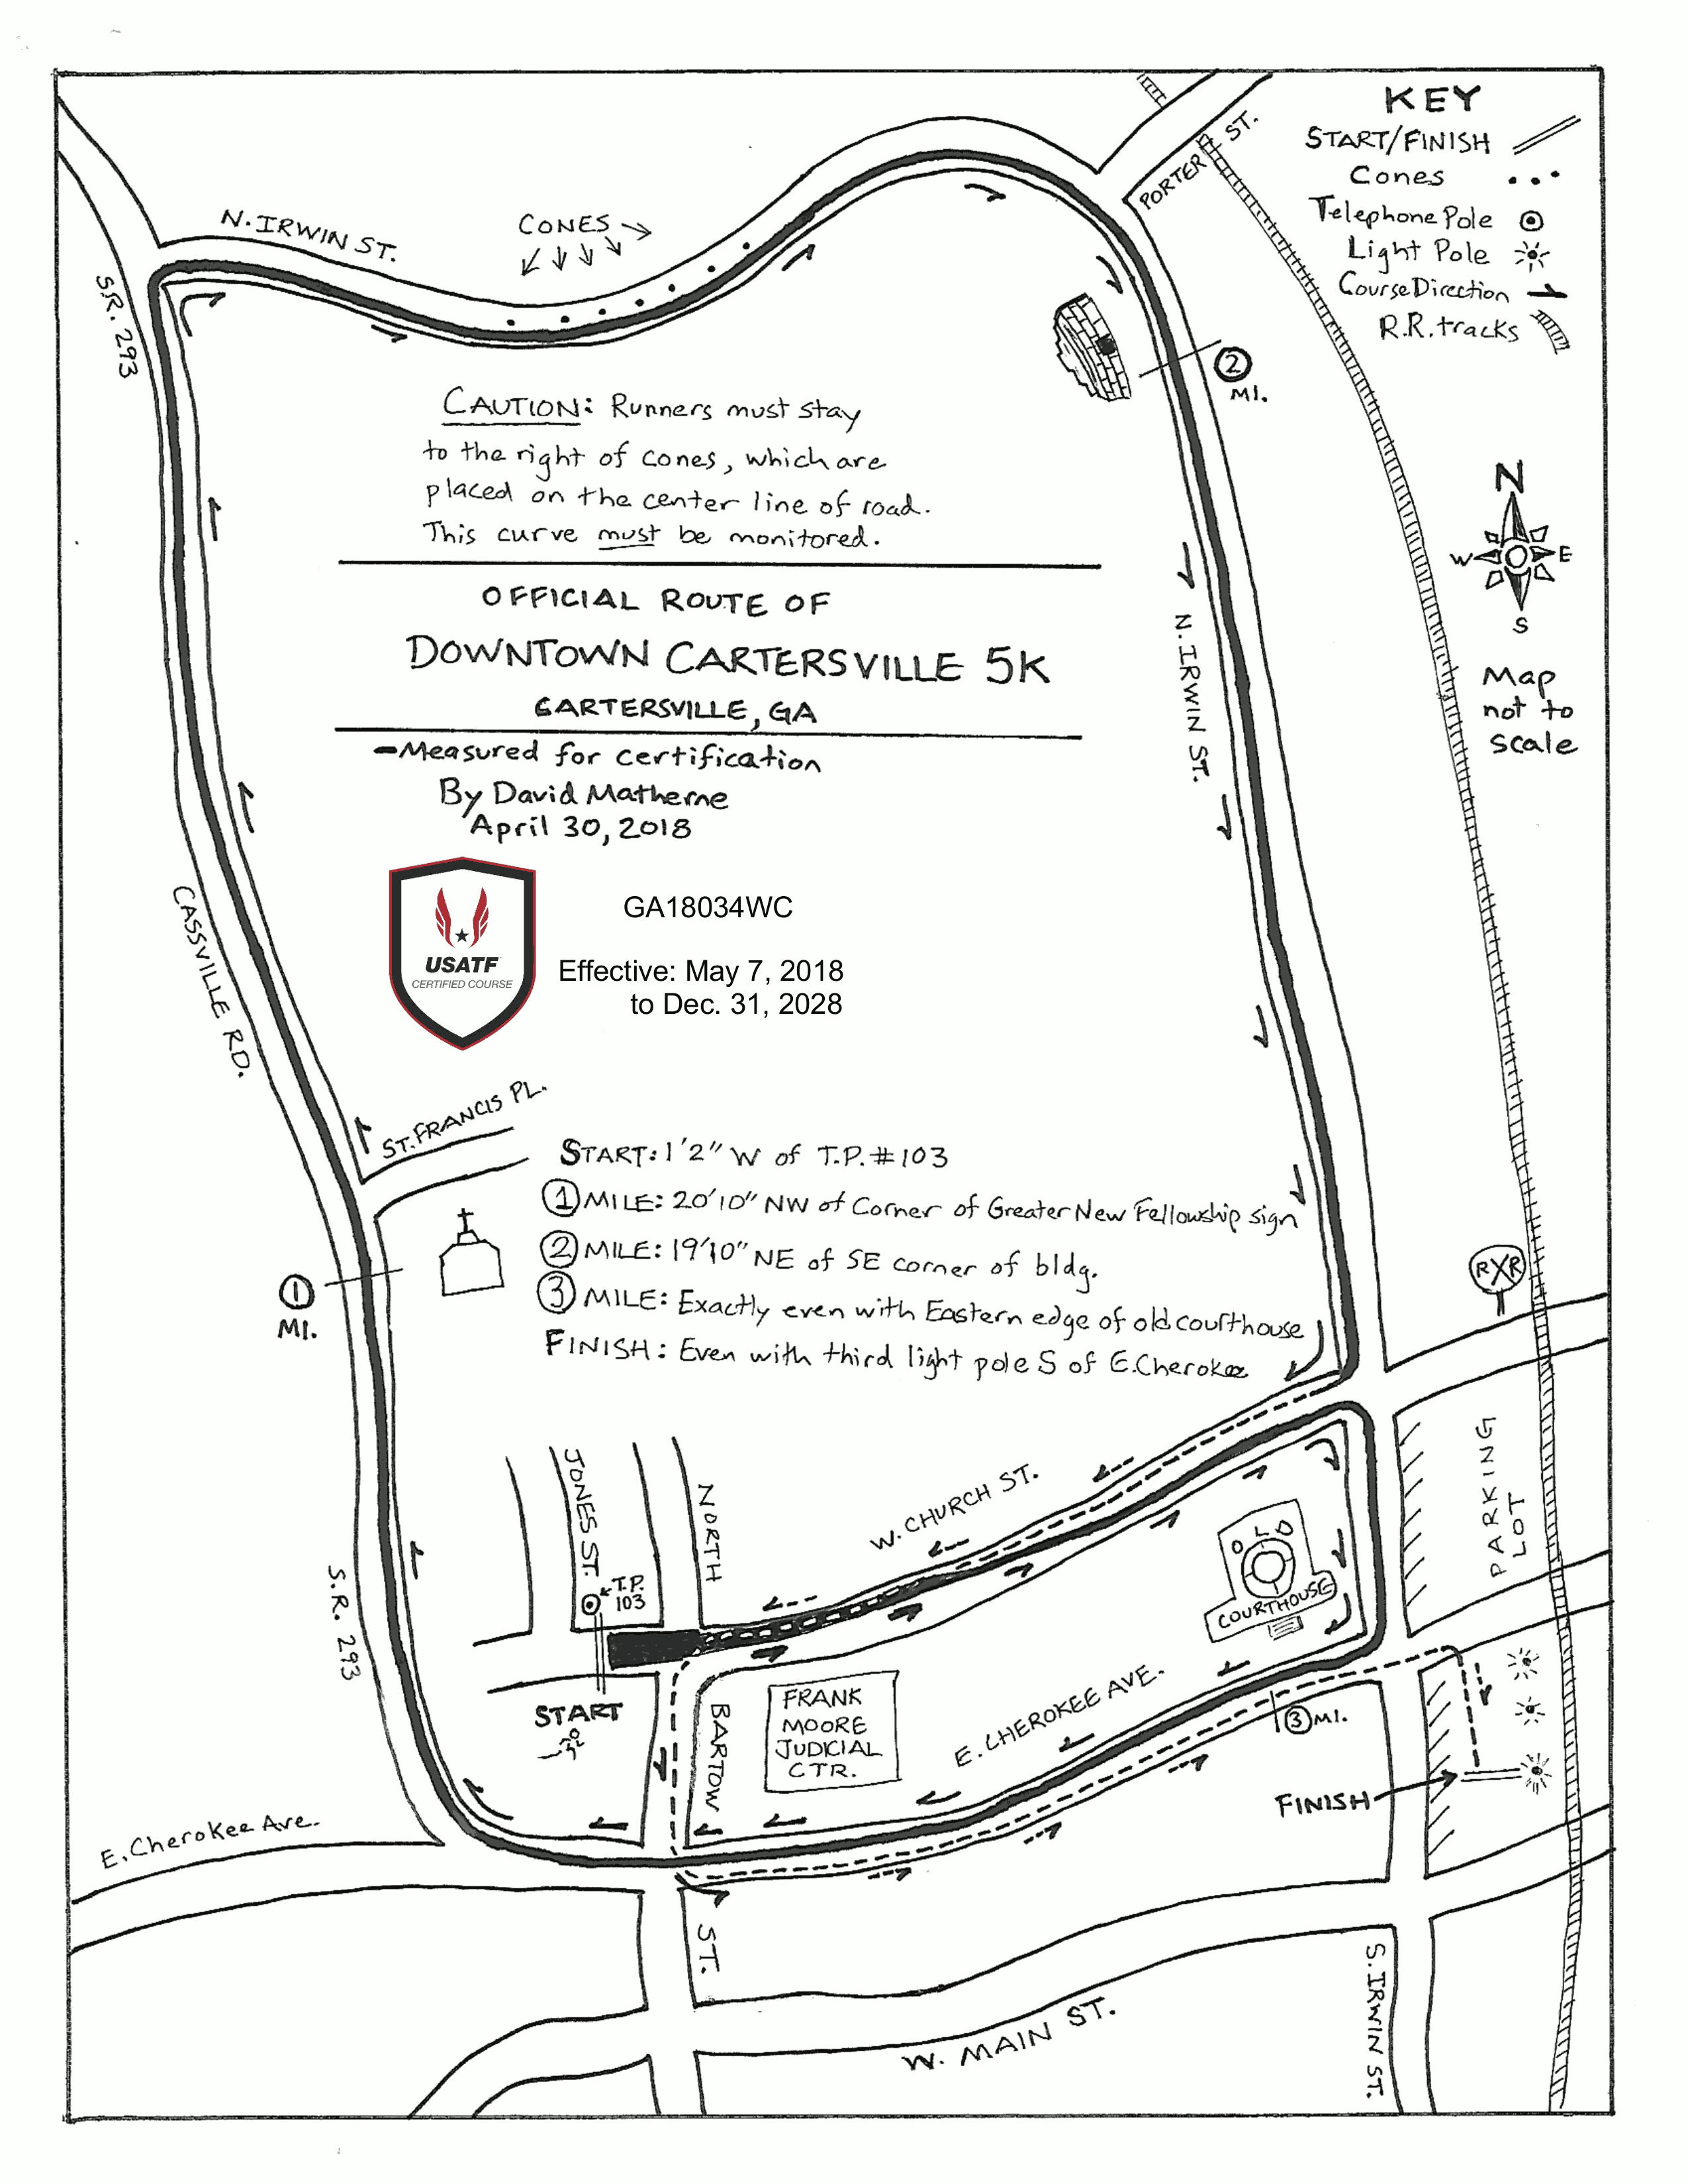 KEY
START/FINISH
Cones
Telephone Pole
Light Pole
Course Direction
R.R. tracks
PORTER ST.
N. IRWIN ST.
CONES
S.R. 293
2
MI.
CAUTION: Runners must stay
to the right of cones, which are
placed on the center line of road.
This curve must be monitored.
N
W E
S
Map
not to
scale
OFFICIAL ROUTE OF
DOWNTOWN CARTERSVILLE 5K
CARTERSVILLE, GA
-Measured for certification
By David Matherne
April 30, 2018
N. IRWIN ST.
USATF
CERTIFIED COURSE
GA18034WC
Effective: May 7, 2018
to Dec. 31, 2028
CASSVILLE RD.
ST. FRANCIS PL.
START: 1'2" W of T.P. #103
1 MILE: 20'10" NW of Corner of Greater New Fellowship sign
2 MILE: 19'10" NE of SE corner of bldg.
3 MILE: Exactly even with Eastern edge of old courthouse
FINISH: Even with third light pole S of E. Cherokee
1
MI.
RXR
PARKING
LOT
JONES ST.
NORTH
W. CHURCH ST.
OLD
COURTHOUSE
T.P.
103
S.R. 293
START
BARTOW
FRANK
MOORE
JUDICIAL
CTR.
E. CHEROKEE AVE.
3 MI.
FINISH
E. Cherokee Ave.
ST.
W. MAIN ST.
S. IRWIN ST.